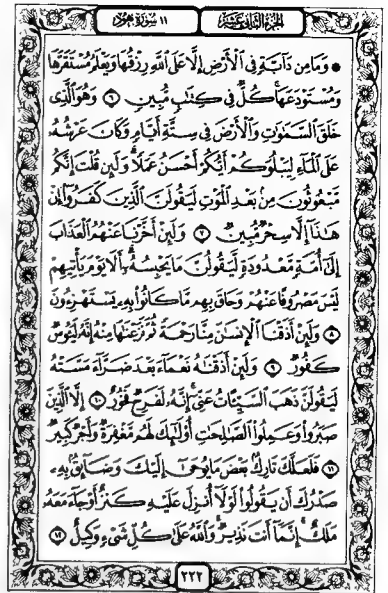 الجزء الثاني عشر
١١ سورة هود
* وَمَا مِن دَآبَّةٍ فِي ٱلْأَرْضِ إِلَّا عَلَى ٱللَّهِ رِزْقُهَا وَيَعْلَمُ مُسْتَقَرَّهَا
وَمُسْتَوْدَعَهَا ۚ كُلٌّ فِي كِتَٰبٍ مُّبِينٍ ٦ وَهُوَ ٱلَّذِي
خَلَقَ ٱلسَّمَٰوَٰتِ وَٱلْأَرْضَ فِي سِتَّةِ أَيَّامٍ وَكَانَ عَرْشُهُۥ
عَلَى ٱلْمَآءِ لِيَبْلُوَكُمْ أَيُّكُمْ أَحْسَنُ عَمَلًا ۗ وَلَئِن قُلْتَ إِنَّكُم
مَّبْعُوثُونَ مِنۢ بَعْدِ ٱلْمَوْتِ لَيَقُولَنَّ ٱلَّذِينَ كَفَرُوٓا۟ إِنْ
هَٰذَآ إِلَّا سِحْرٌ مُّبِينٌ ٧ وَلَئِنْ أَخَّرْنَا عَنْهُمُ ٱلْعَذَابَ
إِلَىٰٓ أُمَّةٍ مَّعْدُودَةٍ لَّيَقُولُنَّ مَا يَحْبِسُهُۥٓ ۗ أَلَا يَوْمَ يَأْتِيهِمْ
لَيْسَ مَصْرُوفًا عَنْهُمْ وَحَاقَ بِهِم مَّا كَانُوا۟ بِهِۦ يَسْتَهْزِءُونَ
٨ وَلَئِنْ أَذَقْنَا ٱلْإِنسَٰنَ مِنَّا رَحْمَةً ثُمَّ نَزَعْنَٰهَا مِنْهُ إِنَّهُۥ لَيَـُٔوسٌ
كَفُورٌ ٩ وَلَئِنْ أَذَقْنَٰهُ نَعْمَآءَ بَعْدَ ضَرَّآءَ مَسَّتْهُ
لَيَقُولَنَّ ذَهَبَ ٱلسَّيِّـَٔاتُ عَنِّيٓ ۚ إِنَّهُۥ لَفَرِحٌ فَخُورٌ ١٠ إِلَّا ٱلَّذِينَ
صَبَرُوا۟ وَعَمِلُوا۟ ٱلصَّٰلِحَٰتِ أُو۟لَٰٓئِكَ لَهُم مَّغْفِرَةٌ وَأَجْرٌ كَبِيرٌ
١١ فَلَعَلَّكَ تَارِكٌۢ بَعْضَ مَا يُوحَىٰٓ إِلَيْكَ وَضَآئِقٌۢ بِهِۦ
صَدْرُكَ أَن يَقُولُوا۟ لَوْلَآ أُنزِلَ عَلَيْهِ كَنزٌ أَوْ جَآءَ مَعَهُۥ
مَلَكٌ ۚ إِنَّمَآ أَنتَ نَذِيرٌ ۚ وَٱللَّهُ عَلَىٰ كُلِّ شَيْءٍ وَكِيلٌ ١٢
٢٢٢